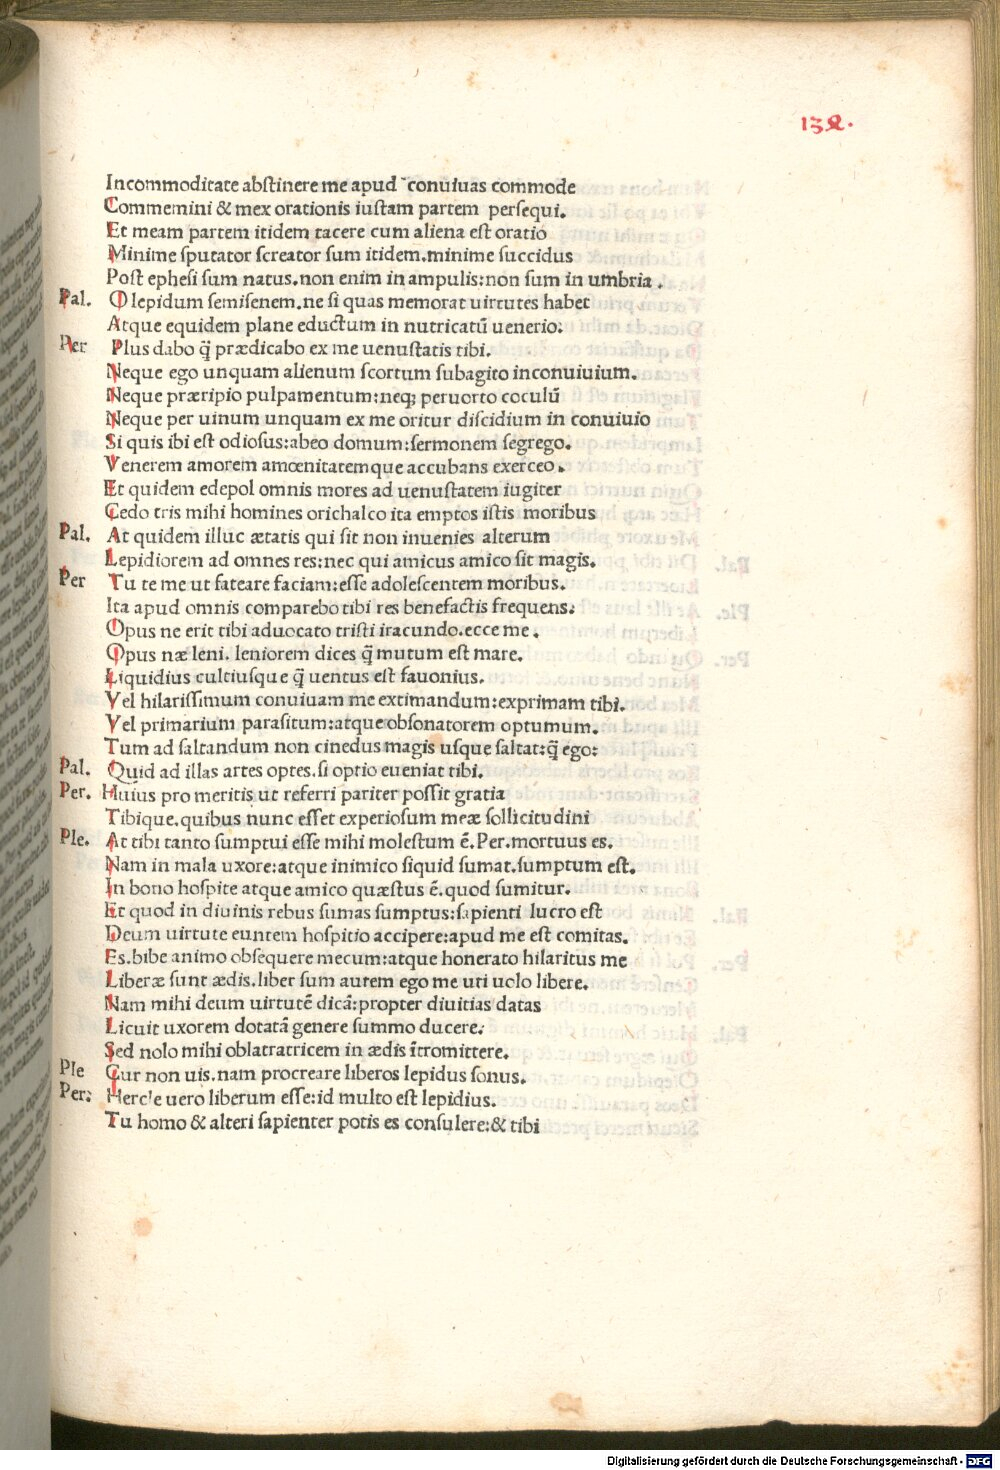 132.
Incommoditate abstinere me apud conuiuas commode
Commemini & mex orationis iustam partem persequi.
Et meam partem itidem tacere cum aliena est oratio
Minime sputator screator sum itidem.minime succidus
Post ephesi sum natus.non enim in ampulis:non sum in umbria.
Pal. O lepidum semisenem.ne si quas memorat uirtutes habet
Atque equidem plane eductum in nutricatũ uenerio:
Per Plus dabo q̃ prædicabo ex me uenustatis tibi.
Neque ego unquam alienum scortum subagito inconuiuium.
Neque præripio pulpamentum:neq; peruorto coculũ
Neque per uinum unquam ex me oritur discidium in conuiuio
Si quis ibi est odiosus:abeo domum:sermonem segrego.
Venerem amorem amœnitatemque accubans exerceo.
Et quidem edepol omnis mores ad uenustatem iugiter
Cedo tris mihi homines orichalco ita emptos istis moribus
Pal. At quidem illuc ætatis qui sit non inuenies alterum
Lepidiorem ad omnes res:nec qui amicus amico sit magis.
Per Tu te me ut fateare faciam:esse adolescentem moribus.
Ita apud omnis comparebo tibi res benefactis frequens:
Opus ne erit tibi aduocato tristi iracundo.ecce me.
Opus næ leni. leniorem dices q̃ mutum est mare.
Liquidius cultiusque q̃ uentus est fauonius.
Vel hilarissimum conuiuam me extimandum:exprimam tibi.
Vel primarium parasitum:atque obsonatorem optumum.
Tum ad saltandum non cinedus magis usque saltat:q̃ ego:
Pal. Quid ad illas artes optes.si optio eueniat tibi.
Per. Huius pro meritis ut referri pariter possit gratia
Tibique.quibus nunc esset experiosum meæ sollicitudini
Ple. At tibi tanto sumptui esse mihi molestum ẽ.Per.mortuus es.
Nam in mala uxore:atque inimico siquid sumat.sumptum est.
In bono hospite atque amico quæstus ẽ.quod sumitur.
Et quod in diuinis rebus sumas sumptus:sapienti lucro est
Deum uirtute euntem hospitio accipere:apud me est comitas.
Es.bibe animo obsequere mecum:atque honerato hilaritus me
Liberæ sunt ædis.liber sum autem ego me uti uolo libere.
Nam mihi deum uirtutẽ dicã:propter diuitias datas
Licuit uxorem dotatã genere summo ducere:
Sed nolo mihi oblatratricem in ædis ĩtromittere.
Ple Cur non uis.nam procreare liberos lepidus sonus.
Per: Hercle uero liberum esse:id multo est lepidius.
Tu homo & alteri sapienter potis es consulere:& tibi
Digitalisierung gefördert durch die Deutsche Forschungsgemeinschaft - DFG